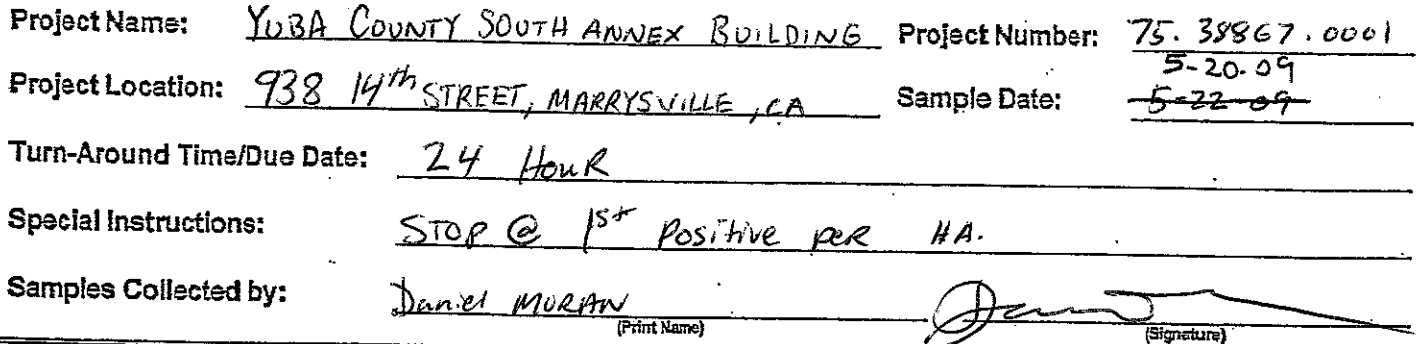 Project Name: YUBA COUNTY SOUTH ANNEX BUILDING Project Number: 75.38867.0001
5-20-09
Project Location: 938 14th STREET, MARRYSVILLE, CA Sample Date: 5-22-09
Turn-Around Time/Due Date: 24 HOUR
Special Instructions: STOP @ 1st Positive PER HA.
Samples Collected by: Daniel MORAN
(Print Name) (Signature)